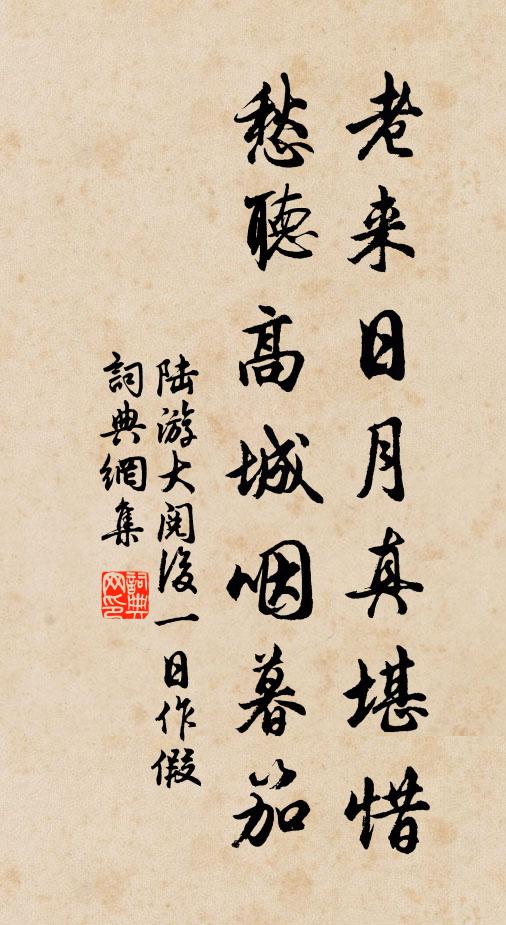 老来日月真堪惜
愁聽高城咽暮笳
陆游大阅後一日作假
詞典網集
詞典網印